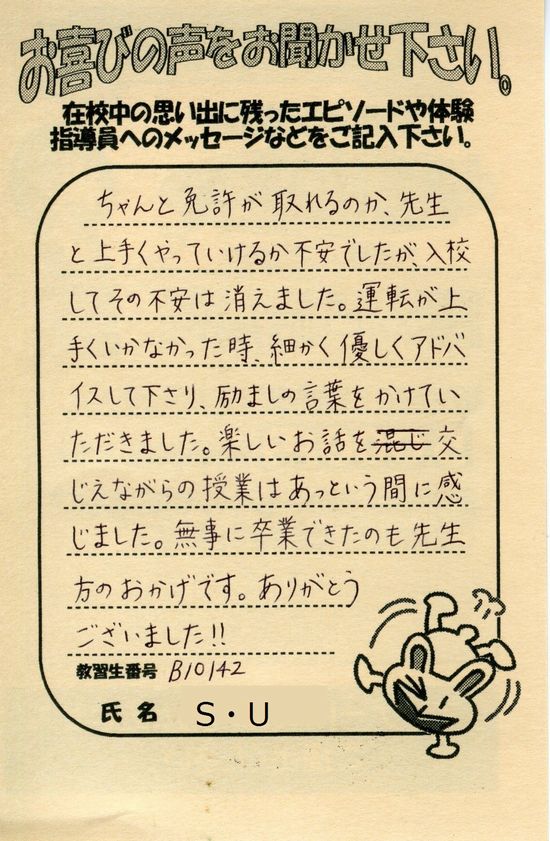 お喜びの声をお聞かせ下さい。
在校中の思い出に残ったエピソードや体験
指導員へのメッセージなどをご記入下さい。
ちゃんと免許が取れるのか、先生
と上手くやっていけるか不安でしたが、入校
してその不安は消えました。運転が上
手くいかなかった時、細かく優しくアドバ
イスして下さり、励ましの言葉をかけてい
ただきました。楽しいお話を混じ交
じえながらの授業はあっという間に感
じました。無事に卒業できたのも先生
方のおかげです。ありがとう
ございました!!
教習生番号 B10142
氏名 S・U